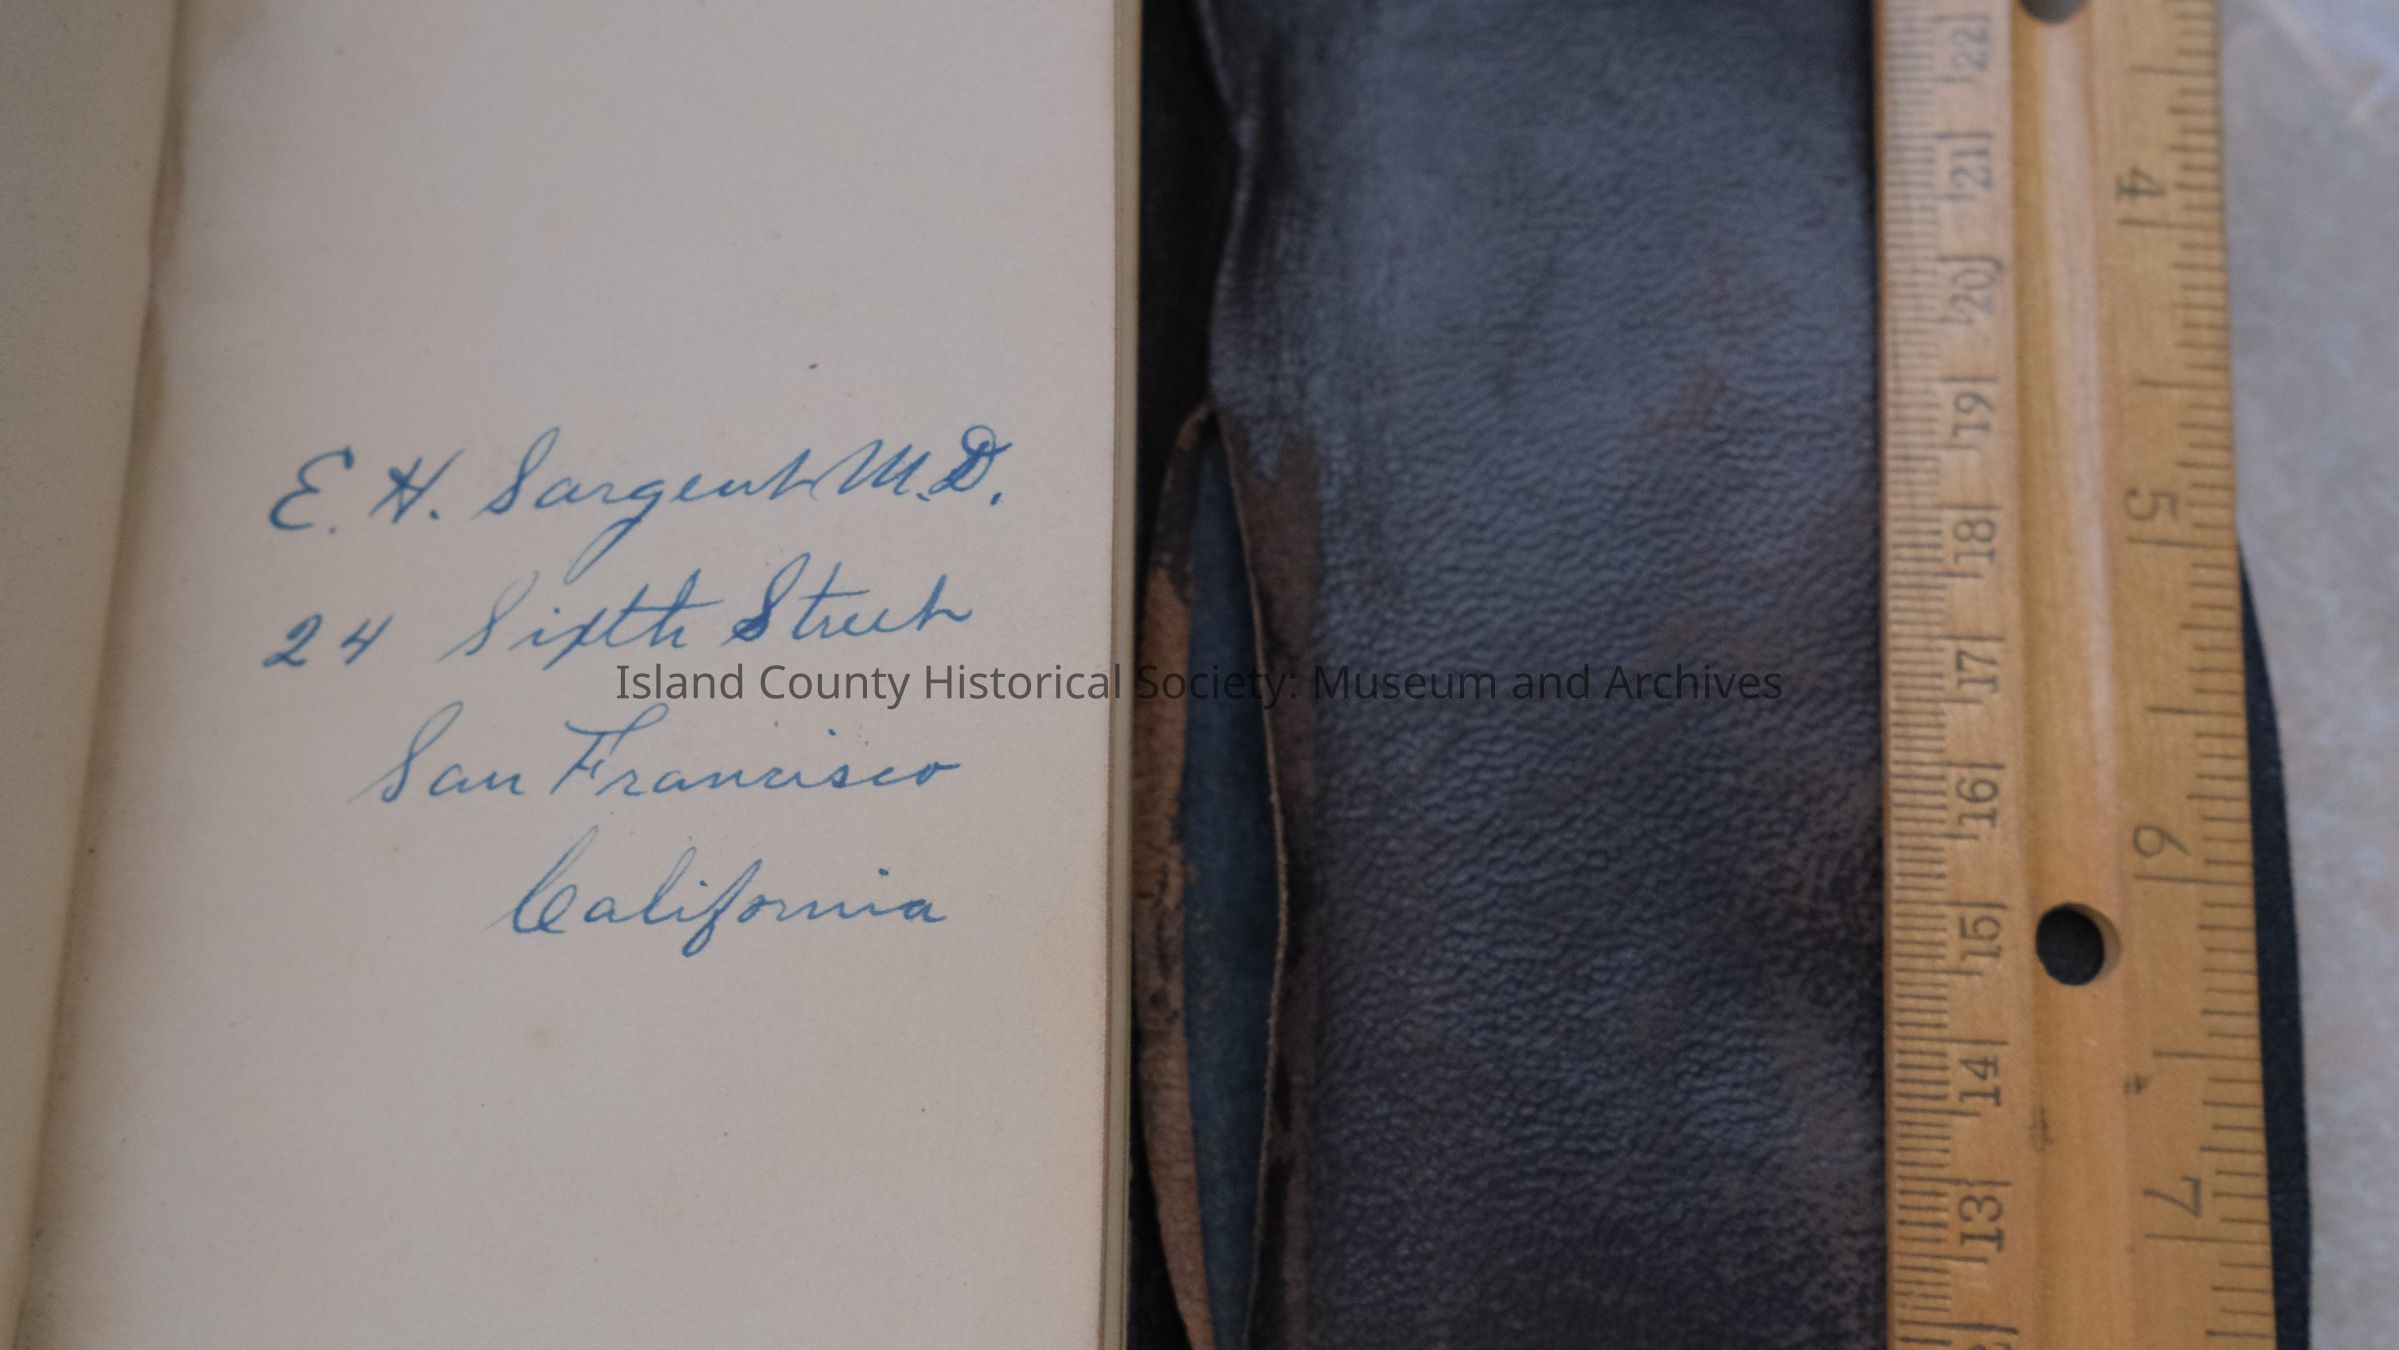 E. H. Sargent M.D.
24 Sixth Street
San Francisco
California
Island County Historical Society: Museum and Archives
22
21
20
19
18
17
16
15
14
13
4
5
6
7